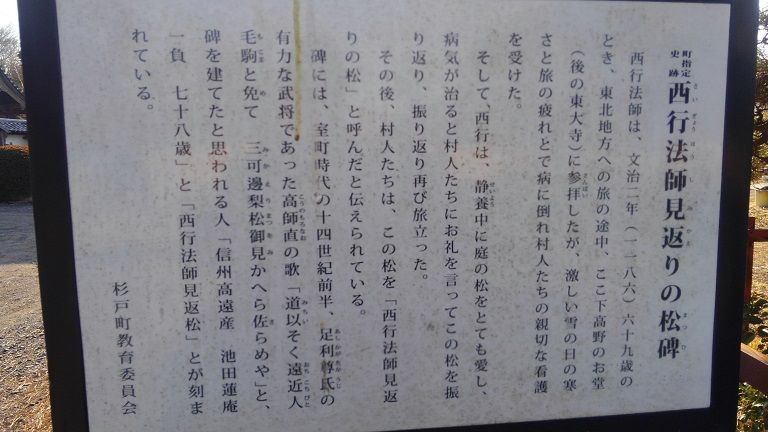 町指定
史跡 西行法師見返りの松碑
西行法師は、文治二年（一一八六）六十九歳の
とき、東北地方への旅の途中、ここ下高野のお堂
（後の東大寺）に参拝したが、激しい雪の日の寒
さと旅の疲れとで病に倒れ村人たちの親切な看護
を受けた。
そして、西行は、静養中に庭の松をとても愛し、
病気が治ると村人たちにお礼を言ってこの松を振
り返り、振り返り再び旅立った。
その後、村人たちは、この松を「西行法師見返
りの松」と呼んだと伝えられている。
碑には、室町時代の十四世紀前半、足利尊氏の
有力な武将であった高師直の歌「道以そく遠近人
毛駒と免て　三可邊梨松御見かへら佐らめや」と、
碑を建てたと思われる人「信州高遠産　池田蓮庵
一負　七十八歳」と「西行法師見返松」とが刻ま
れている。
杉戸町教育委員会